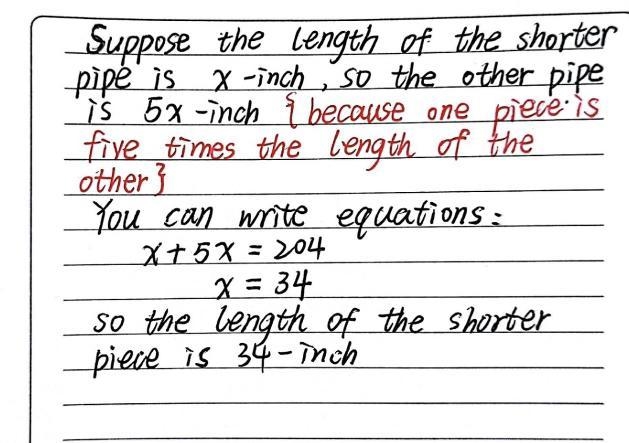 Suppose the length of the shorter
pipe is x-inch, so the other pipe
is 5x-inch {because one piece is
five times the length of the
other}
You can write equations:
x+5x = 204
x = 34
so the length of the shorter
piece is 34-inch